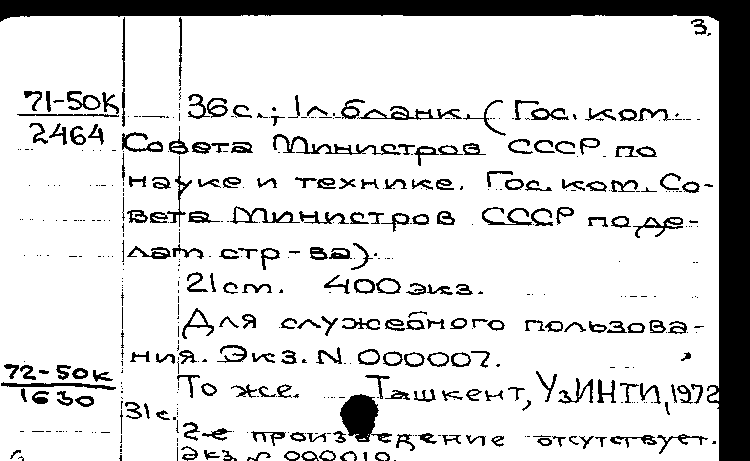 3.
71-50К 36с.; 1л.бланк. (Гос. ком.
2464 Совета Министров СССР по
науке и технике. Гос. ком. Со-
вета Министров СССР по де-
лам стр-ва).
21 cm. 400 экз.
Для служебного пользова-
ния. Экз. N 000007.
72-50к То же. Ташкент, УзИНТИ, 1972
1630
31с.
2-е произведение отсутствует.
Экз. N 000010.